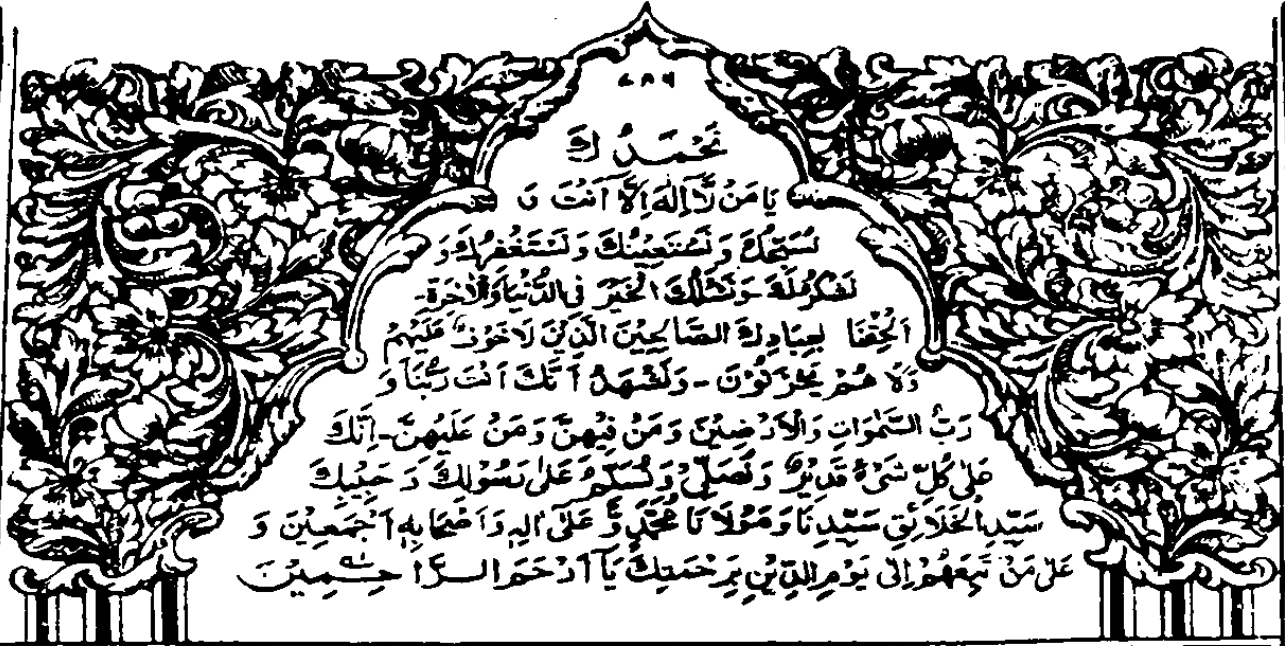 ۷۸۶
نَحْمَدُكَ
يَا مَنْ لَّا اِلٰهَ اِلَّا اَنْتَ وَ
نُسَبِّحُكَ وَ نَسْتَعِيْنُكَ وَ نَسْتَغْفِرُكَ وَ
نَشْكُرُ لَكَ وَ نَسْئَلُكَ الْخَيْرَ فِى الدُّنْيَا وَالْاٰخِرَةِ-
اَلْحِقْنَا بِعِبَادِكَ الصَّالِحِيْنَ الَّذِيْنَ لَا خَوْفٌ عَلَيْهِمْ
وَلَا هُمْ يَحْزَنُوْنَ - وَنَشْهَدُ اَنَّكَ اَنْتَ رَبُّنَا وَ
رَبُّ السَّمٰوَاتِ وَالْاَرْضِيْنَ وَمَنْ فِيْهِنَّ وَمَنْ عَلَيْهِنَّ-اِنَّكَ
عَلٰى كُلِّ شَىْءٍ قَدِيْرٌ وَ نُصَلِّىْ وَ نُسَلِّمُ عَلٰى رَسُوْلِكَ وَ حَبِيْبِكَ
سَيِّدِ الْخَلَائِقِ سَيِّدِنَا وَمَوْلَانَا مُحَمَّدٍ وَّ عَلٰى اٰلِهٖ وَاَصْحَابِهٖ اَجْمَعِيْنَ وَ
عَلٰى مَنْ تَبِعَهُمْ اِلٰى يَوْمِ الدِّيْنِ بِرَحْمَتِكَ يَآ اَرْحَمَ الرَّاحِمِيْنَ